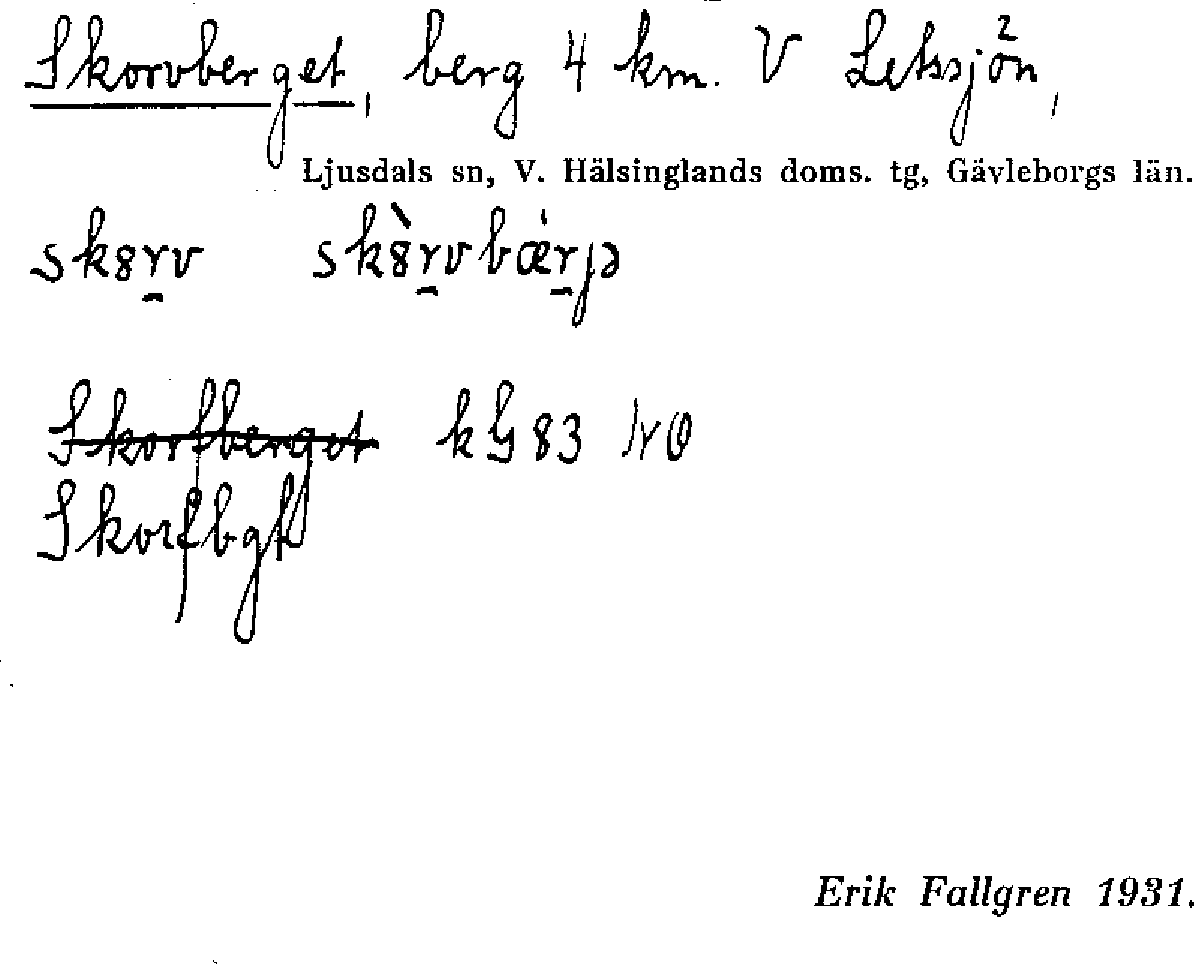 Skorvberget, berg 4 km. V Letssjön²,
Ljusdals sn, V. Hälsinglands doms. tg, Gävleborgs län.
sk8r̠v sk8̀r̠vbǽr̠jə
Skorfberget kG 83 NO
Skorfbgt
Erik Fallgren 1931.